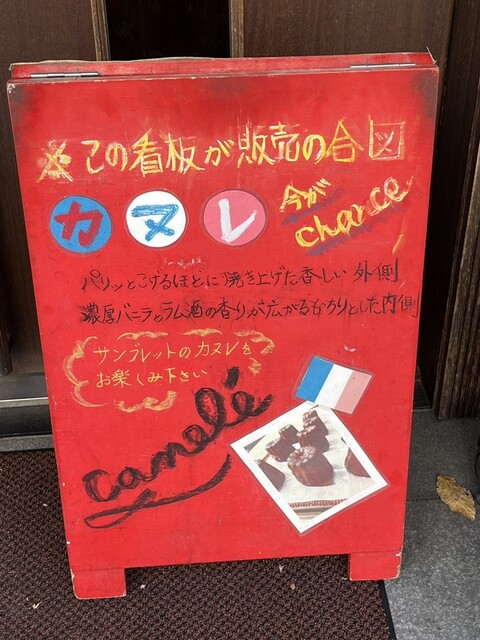 ※この看板が販売の合図
カヌレ
今が
chance
パリッとこげるほどに焼き上げた香しい外側
濃厚バニラとラム酒の香りが広がるもちりとした内側
サンプレットのカヌレを
お楽しみ下さい
camelé